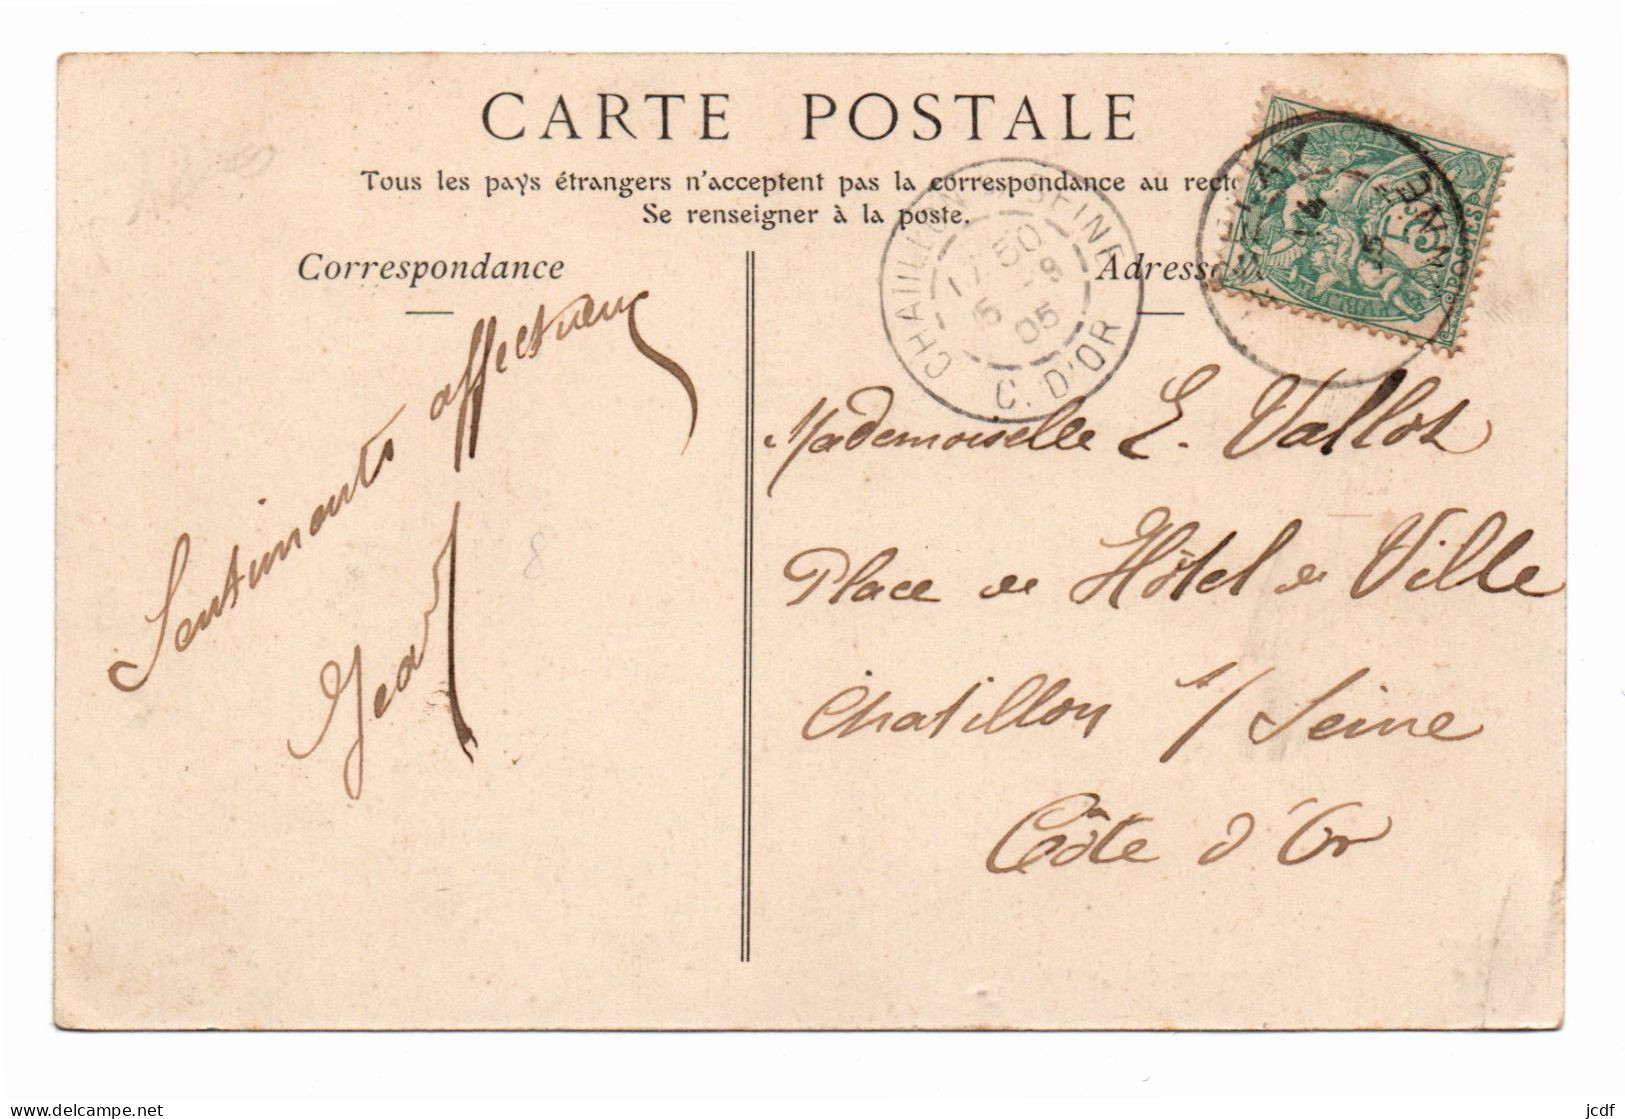 CARTE POSTALE
Tous les pays étrangers n'acceptent pas la correspondance au recto
Se renseigner à la poste.
Correspondance
Adresse
CHATILLON S SEINE
17 50
5 -8
05
C. D'OR
5
POSTES
Sentiments affectueux
Jean
8
Mademoiselle E. Vallot
Place de Hôtel de Ville
Chatillon s/ Seine
Côte d'Or
delcampe.net
jcdf